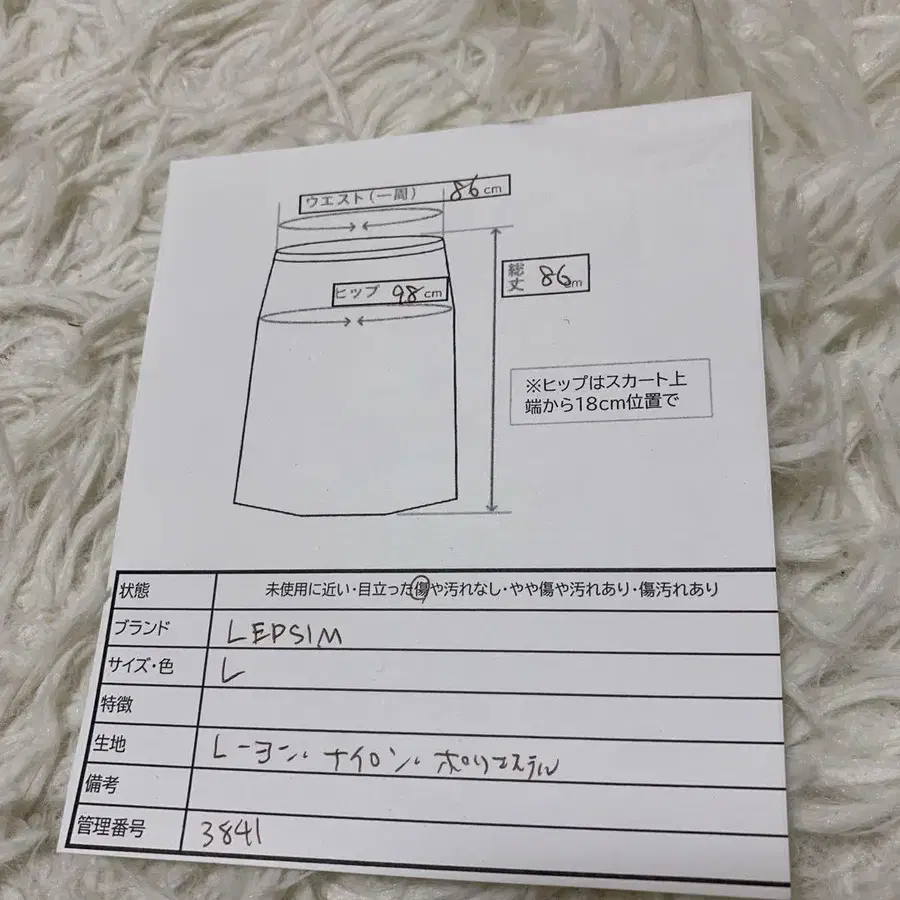 ウエスト(一周) 86cm
ヒップ 98cm
総丈 86cm
※ヒップはスカート上
端から18cm位置で
状態 未使用に近い・目立った傷や汚れなし・やや傷や汚れあり・傷汚れあり
ブランド LEPSIM
サイズ・色 L
特徴
生地 レーヨン・ナイロン・ポリエステル
備考
管理番号 3841